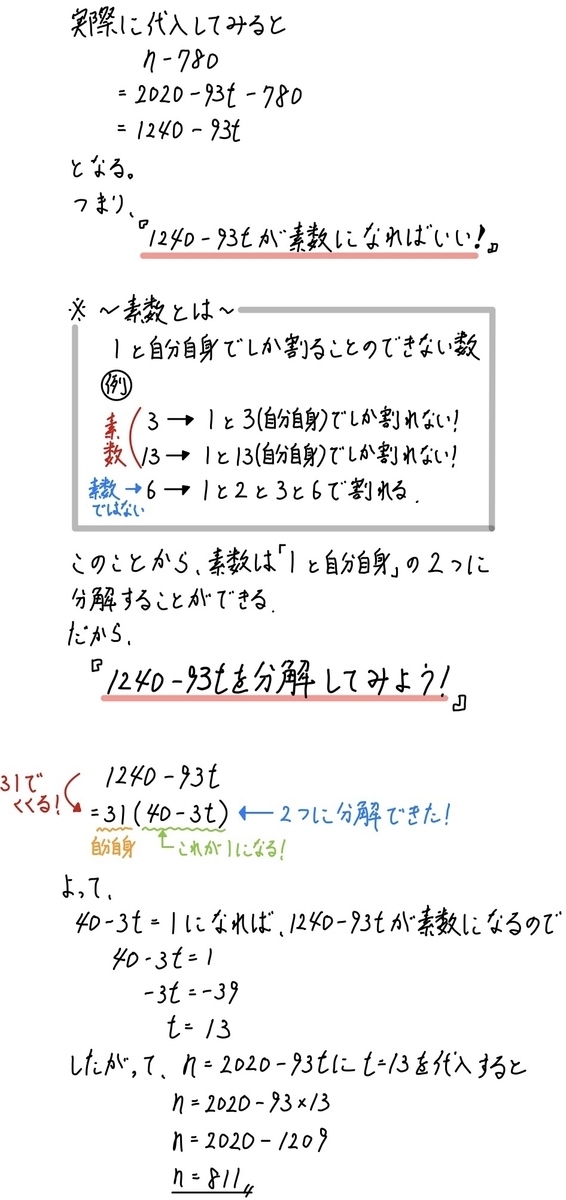 実際に代入してみると
n-780
=2020-93t-780
=1240-93t
となる。
つまり、
『1240-93tが素数になればいい!』
※ ～素数とは～
1と自分自身でしか割ることのできない数
例
素数
3 → 1と3(自分自身)でしか割れない!
13 → 1と13(自分自身)でしか割れない!
素数ではない → 6 → 1と2と3と6で割れる.
このことから、素数は「1と自分自身」の2つに
分解することができる.
だから、
『1240-93tを分解してみよう!』
31でくくる!
1240-93t
=31(40-3t) ← 2つに分解できた!
自分自身 これが1になる!
よって、
40-3t=1になれば、1240-93tが素数になるので
40-3t=1
-3t=-39
t=13
したがって、n=2020-93tにt=13を代入すると
n=2020-93×13
n=2020-1209
n=811〃